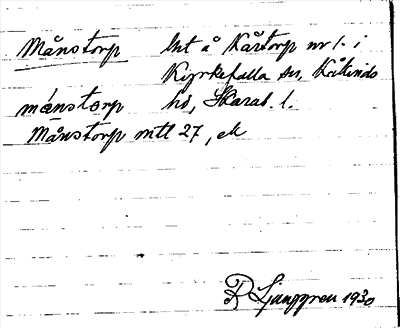 Månstorp lht å Kårtorp nr 1. i
Kyrkefalla sn, Kåkinds
månstorp hd, Skarab. l.
Månstorp mtl 27, ek
R Ljunggren 1930